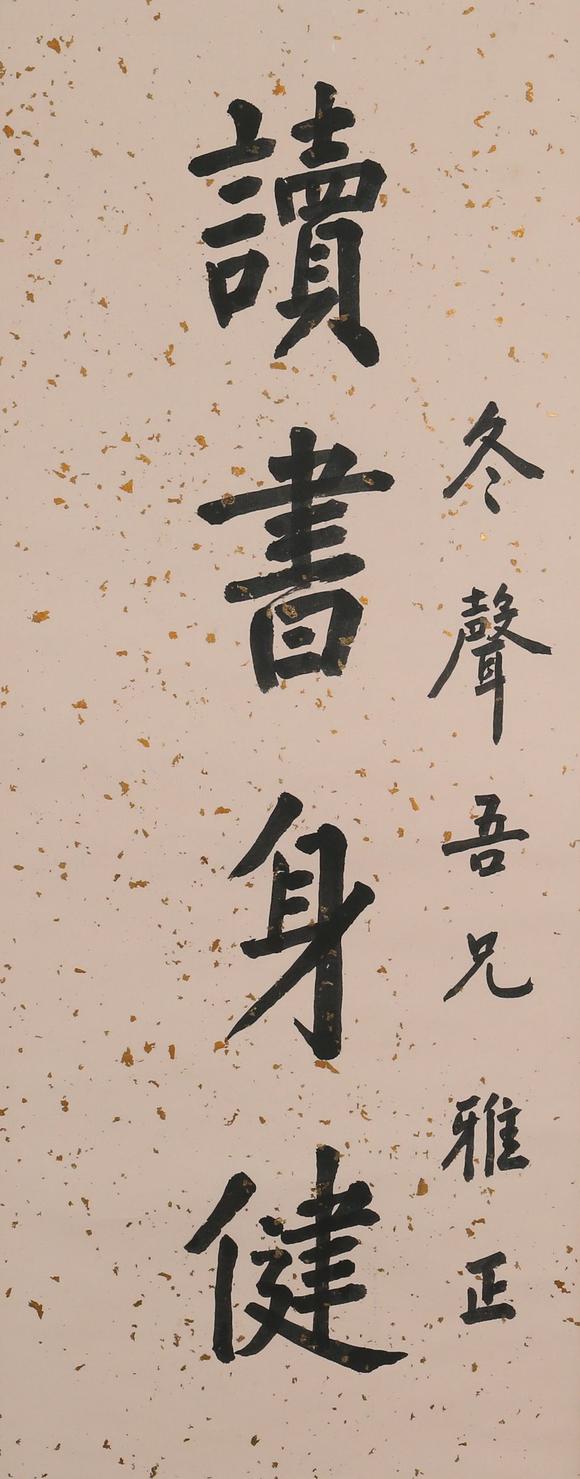 冬聲吾兄雅正
讀書身健